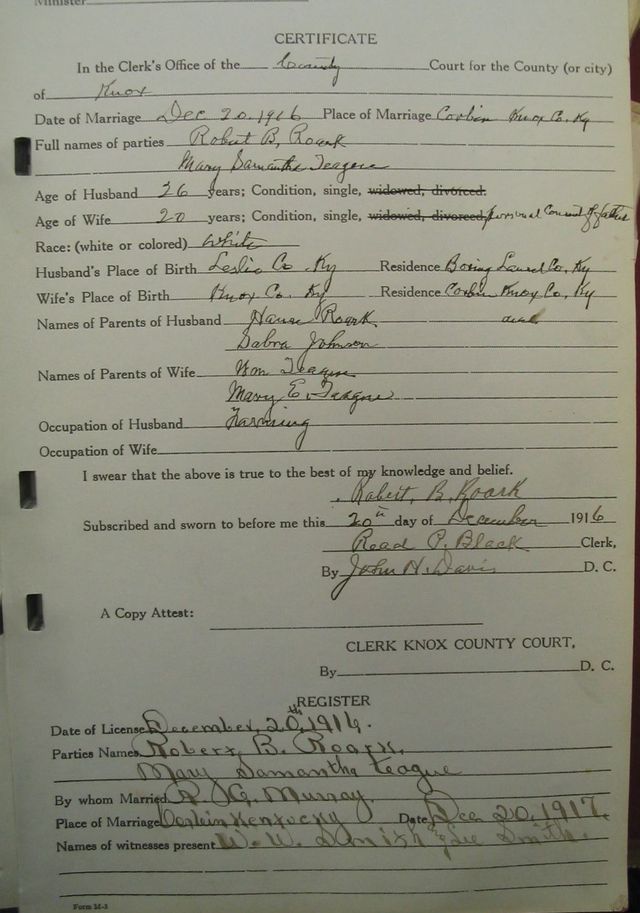 Minister
CERTIFICATE
In the Clerk's Office of the County Court for the County (or city)
of Knox
Date of Marriage Dec 20, 1916 Place of Marriage Corbin Knox Co. Ky
Full names of parties Robert B. Roark
Mary Samantha Teague
Age of Husband 26 years; Condition, single, widowed, divorced.
Age of Wife 20 years; Condition, single, widowed, divorced personal Consent of father
Race: (white or colored) White
Husband's Place of Birth Leslie Co. Ky Residence Boring Laurel Co, Ky
Wife's Place of Birth Knox Co. Ky Residence Corbin Knox Co, Ky
Names of Parents of Husband Roark
Sabra Johnson
Names of Parents of Wife Wm Teague
Mary E. Teague
Occupation of Husband Farming
Occupation of Wife
I swear that the above is true to the best of my knowledge and belief.
Robert. B. Roark
Subscribed and sworn to before me this 20th day of December 1916
Read P. Black Clerk,
By John H. Davis D. C.
A Copy Attest:
CLERK KNOX COUNTY COURT,
By D. C.
REGISTER
Date of License December, 20th, 1916.
Parties Names Robert B. Roark.
Mary Samantha Teague
By whom Married R. G. Murray.
Place of Marriage Corbin Kentucky Date Dec 20, 1917.
Names of witnesses present W. W. Smith & Lee Smith.
Form M-3